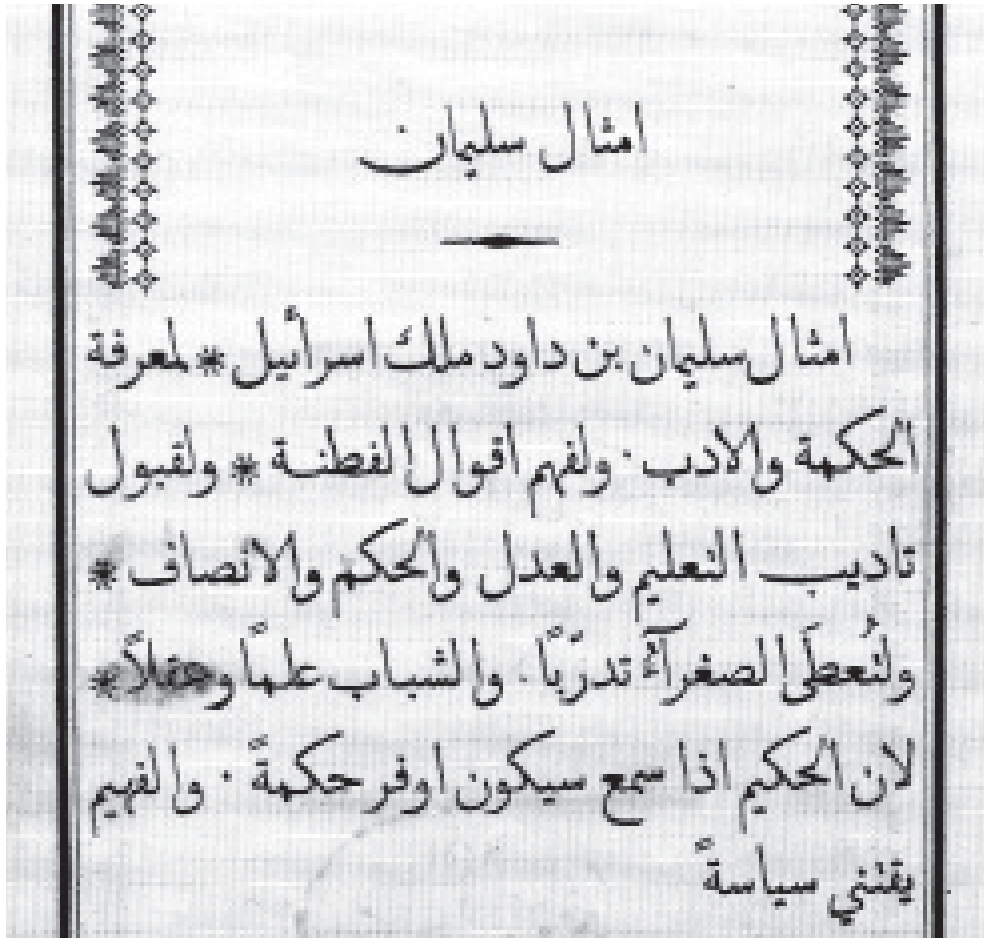 امثال سليمان
امثال سليمان بن داود ملك اسرأيل * لمعرفة
الحكمة والادب · ولفهم اقوال الفطنة * ولقبول
تاديب التعليم والعدل والحكم والانصاف *
ولتُعطَى الصغرآءُ تدرّبًا · والشباب علمًا وعقلاً *
لان الحكيم اذا سمع سيكون اوفر حكمةً · والفهيم
يقتني سياسةً